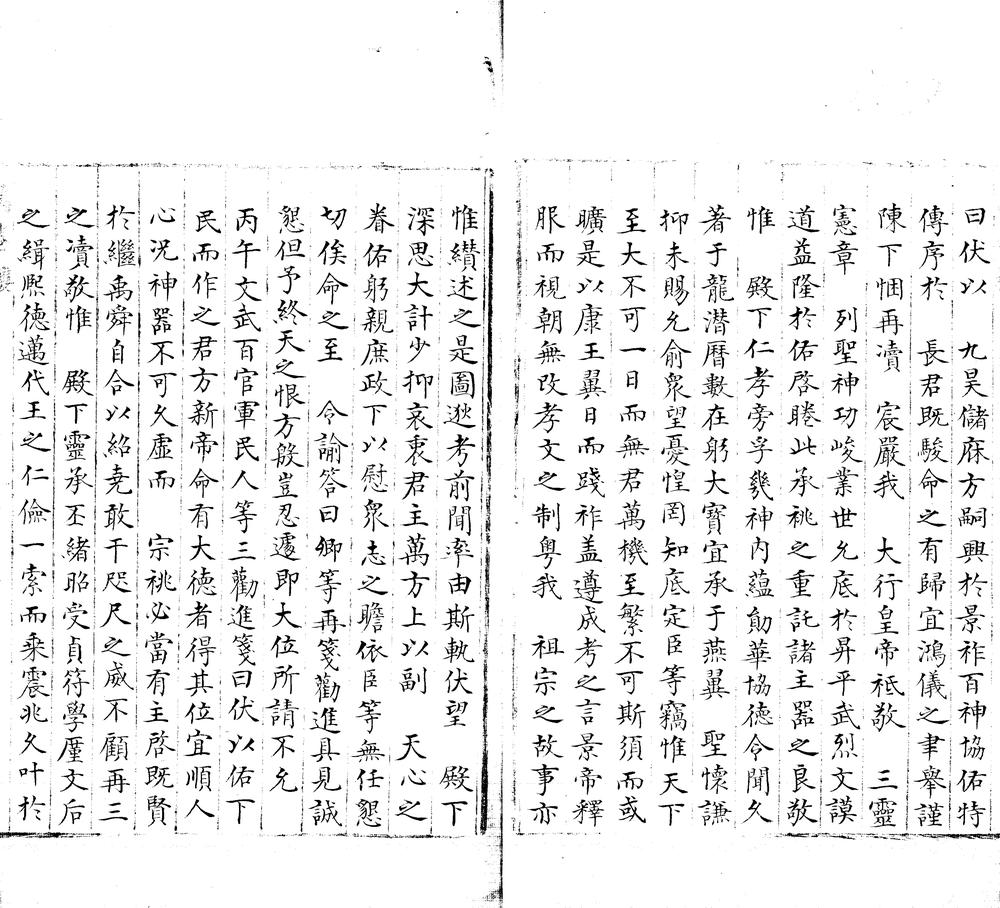 曰伏以　九昊儲庥方嗣興於景祚百神協佑特
傳序於　長君既駿命之有歸宜鴻儀之聿舉謹
陳下悃再凟　宸嚴我　大行皇帝祗敬　三靈
憲章　列聖神功峻業世允底於昇平武烈文謨
道益隆於佑啓睠此承祧之重託諸主器之良敬
惟　殿下仁孝旁孚幾神內蘊勛華協德令聞久
著于龍潛曆數在躬大寶宜承于燕翼　聖懷謙
抑未賜允俞衆望憂惶罔知底定臣等竊惟天下
至大不可一日而無君萬機至繁不可斯須而或
曠是以康王翼日而踐祚盖遵成考之言景帝釋
服而視朝無改孝文之制粤我　祖宗之故事亦
惟纘述之是圖逖考前聞率由斯軌伏望　殿下
深思大計少抑哀衷君主萬方上以副　天心之
眷佑躬親庶政下以慰衆志之瞻依臣等無任懇
切俟命之至　令諭答曰卿等再箋勸進具見誠
懇但予終天之恨方殷豈忍遽即大位所請不允
丙午文武百官軍民人等三勸進箋曰伏以佑下
民而作之君方新帝命有大德者得其位宜順人
心況神器不可久虛而　宗祧必當有主啓既賢
於繼禹舜自合以紹堯敢干咫尺之威不顧再三
之凟敬惟　殿下靈承丕緒昭受貞符學廑文后
之緝熙德邁代王之仁儉一索而乘震兆久叶於